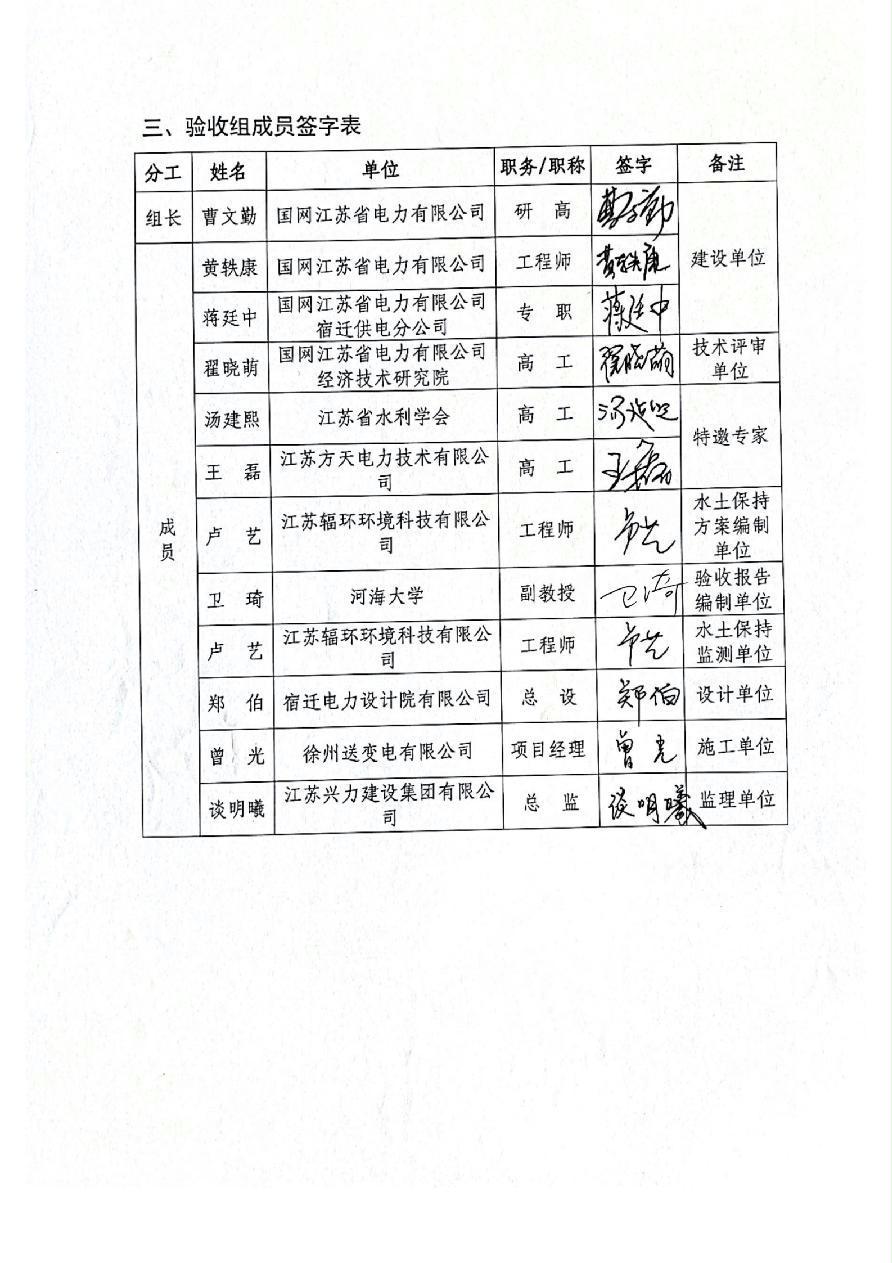 三、验收组成员签字表
分工 姓名 单位 职务/职称 签字 备注
组长 曹文勤 国网江苏省电力有限公司 研 高 曹文勤 建设单位
成员
黄轶康 国网江苏省电力有限公司 工程师 黄轶康
蒋廷中 国网江苏省电力有限公司
宿迁供电分公司 专 职 蒋廷中
翟晓萌 国网江苏省电力有限公司
经济技术研究院 高 工 翟晓萌 技术评审
单位
汤建熙 江苏省水利学会 高 工 特邀专家
王 磊 江苏方天电力技术有限公
司 高 工 王磊
卢 艺 江苏辐环环境科技有限公
司 工程师 卢艺 水土保持
方案编制
单位
卫 琦 河海大学 副教授 卫琦 验收报告
编制单位
卢 艺 江苏辐环环境科技有限公
司 工程师 卢艺 水土保持
监测单位
郑 伯 宿迁电力设计院有限公司 总 设 郑伯 设计单位
曾 光 徐州送变电有限公司 项目经理 曾光 施工单位
谈明曦 江苏兴力建设集团有限公
司 总 监 谈明曦 监理单位